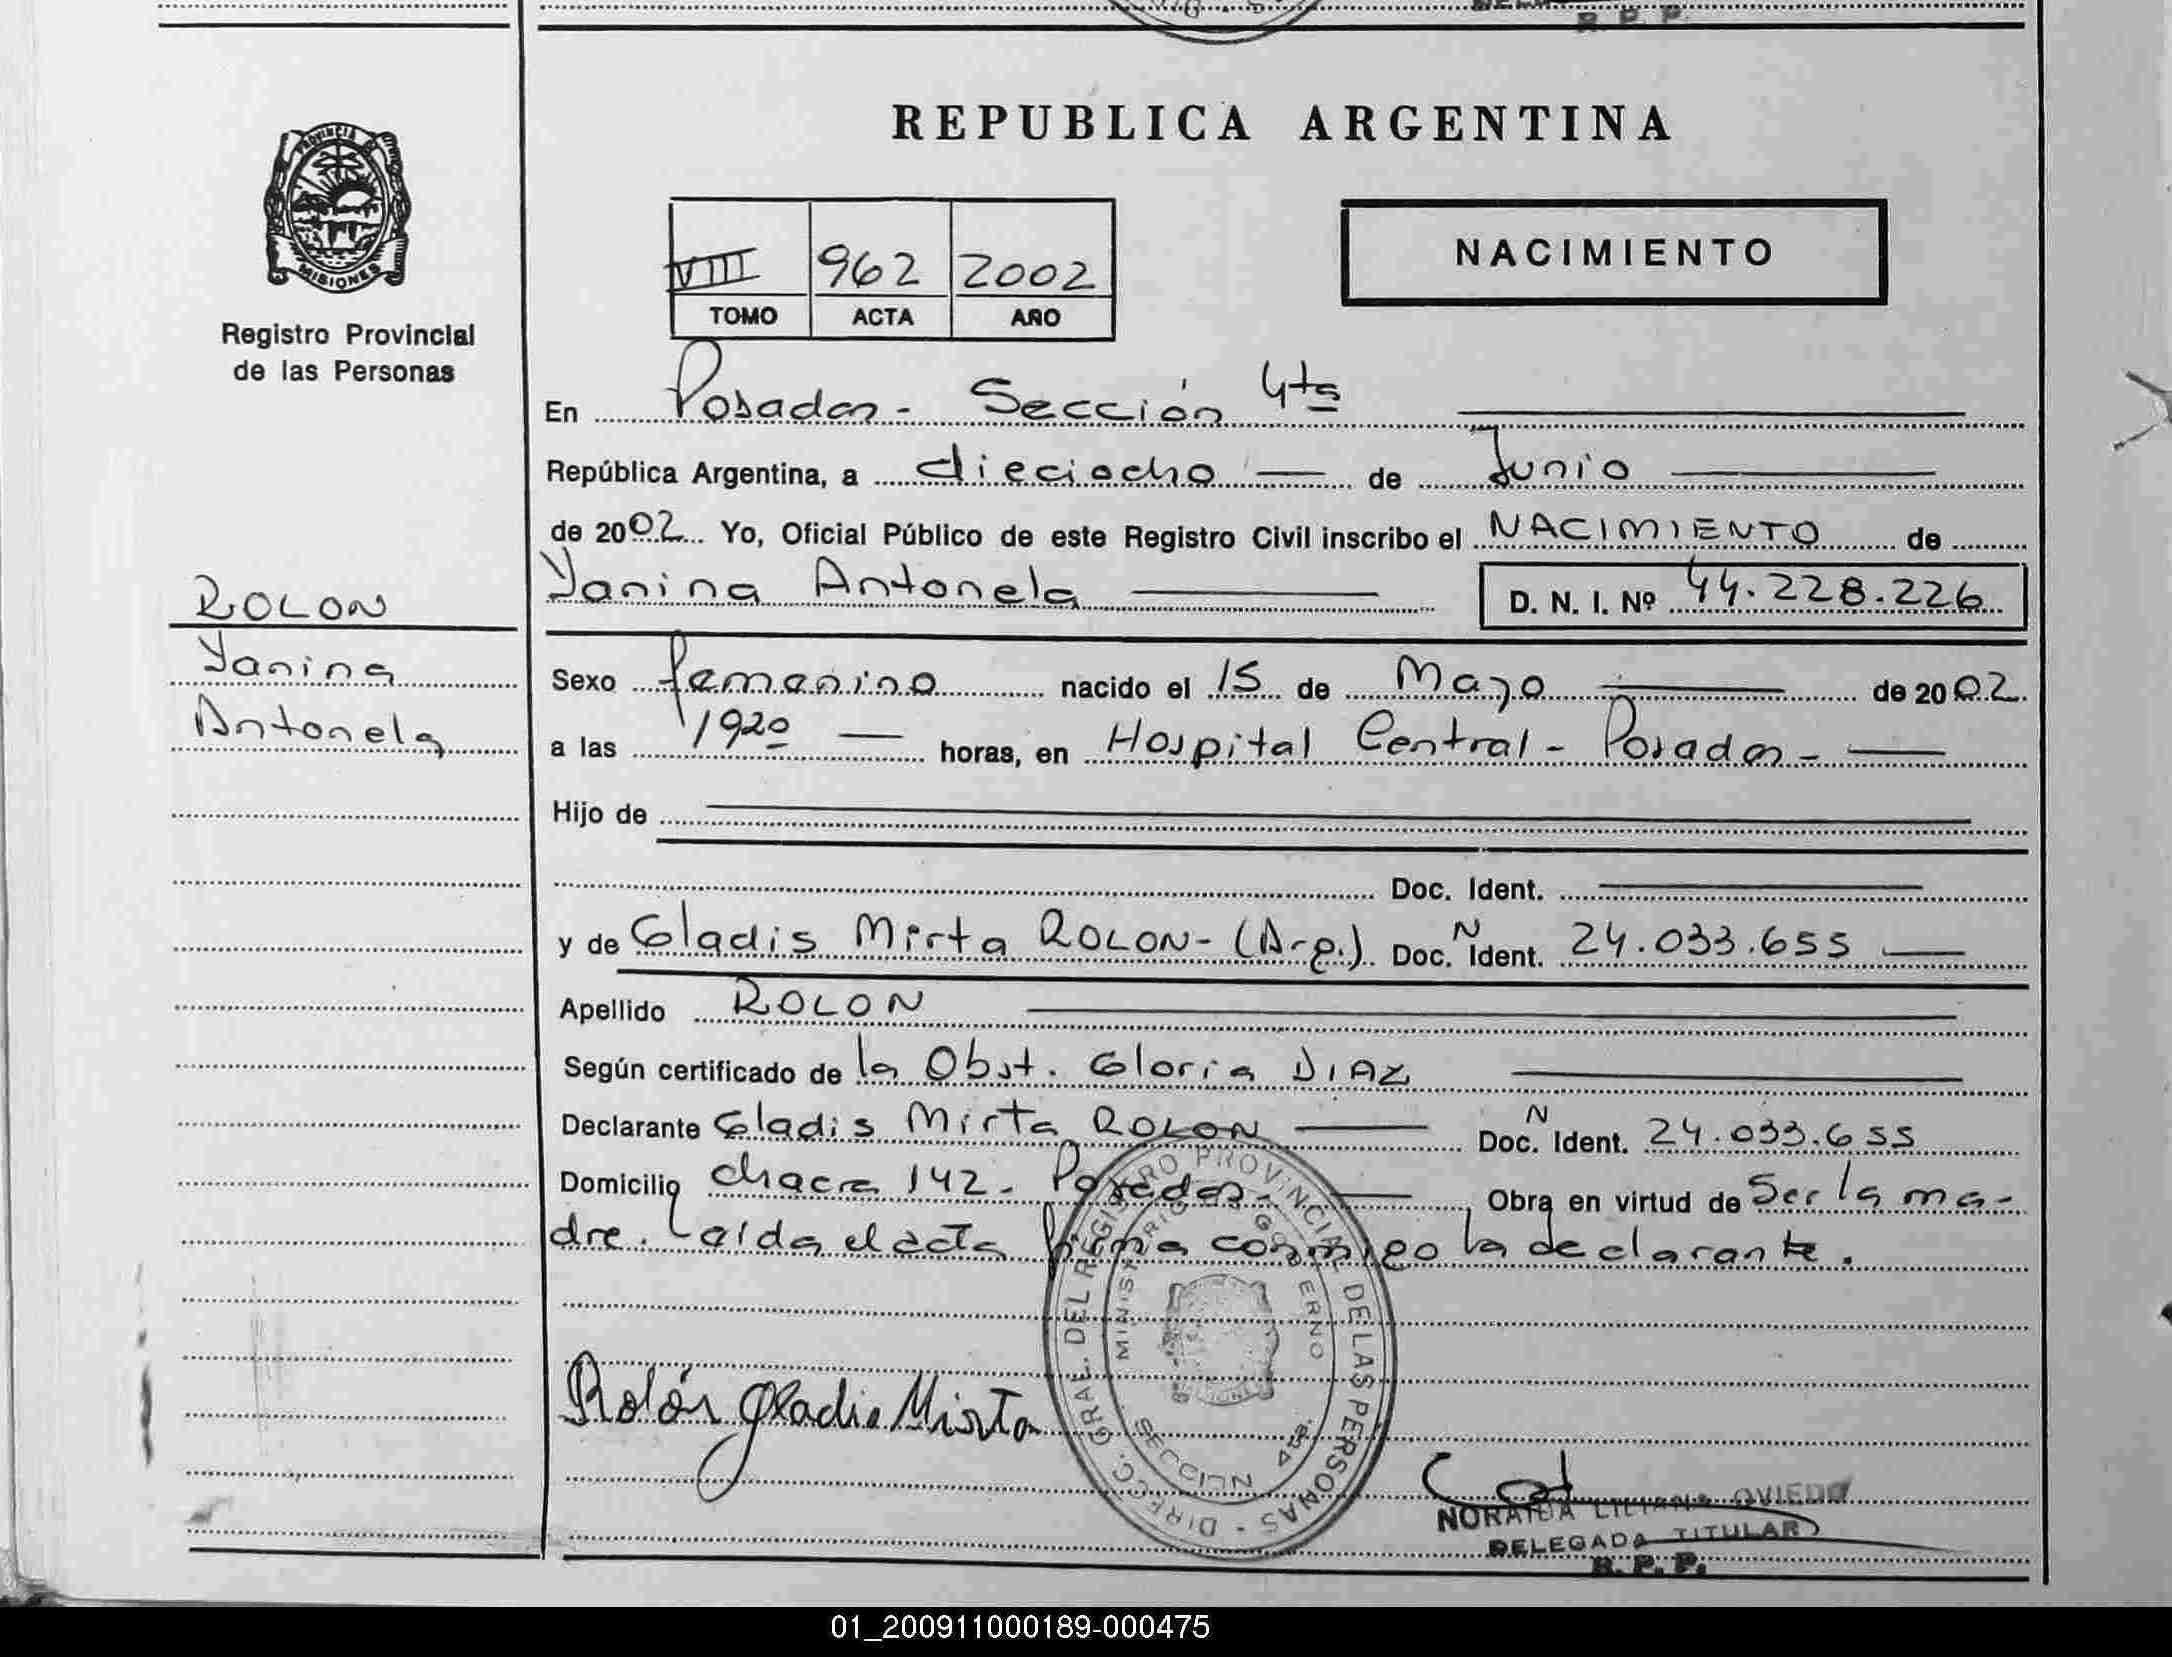 R. P. P.
PROVINCIA
MISIONES
Registro Provincial
de las Personas
REPUBLICA ARGENTINA
VIII 962 2002
TOMO ACTA AÑO
NACIMIENTO
En Posadas - Sección 4ta
República Argentina, a dieciocho de Junio
de 2002 Yo, Oficial Público de este Registro Civil inscribo el NACIMIENTO de
Yanina Antonela D. N. I. Nº 44.228.226
ROLON
Yanina
Antonela
Sexo femenino nacido el 15 de Mayo de 2002.
a las 1920 horas, en Hospital Central - Posadas -
Hijo de
Doc. Ident.
y de Gladis Mirta ROLON - (Arg.) Doc. N Ident. 24.033.655
Apellido ROLON
Según certificado de la Obst. Gloria DIAZ
Declarante Gladis Mirta ROLON Doc. N Ident. 24.033.655
Domicilio chacra 142 - Posadas - Obra en virtud de Ser la ma-
dre. Leída el acta firma conmigo la declarante.
DIREC. GRAL. DEL REGISTRO PROVINCIAL DE LAS PERSONAS -
MINISTERIO DE GOBIERNO
SECCION 4ta.
Rolón Gladis Mirta
NORAIDA LILIANA OVIEDO
DELEGADA TITULAR
R. P. P.
01_200911000189-000475